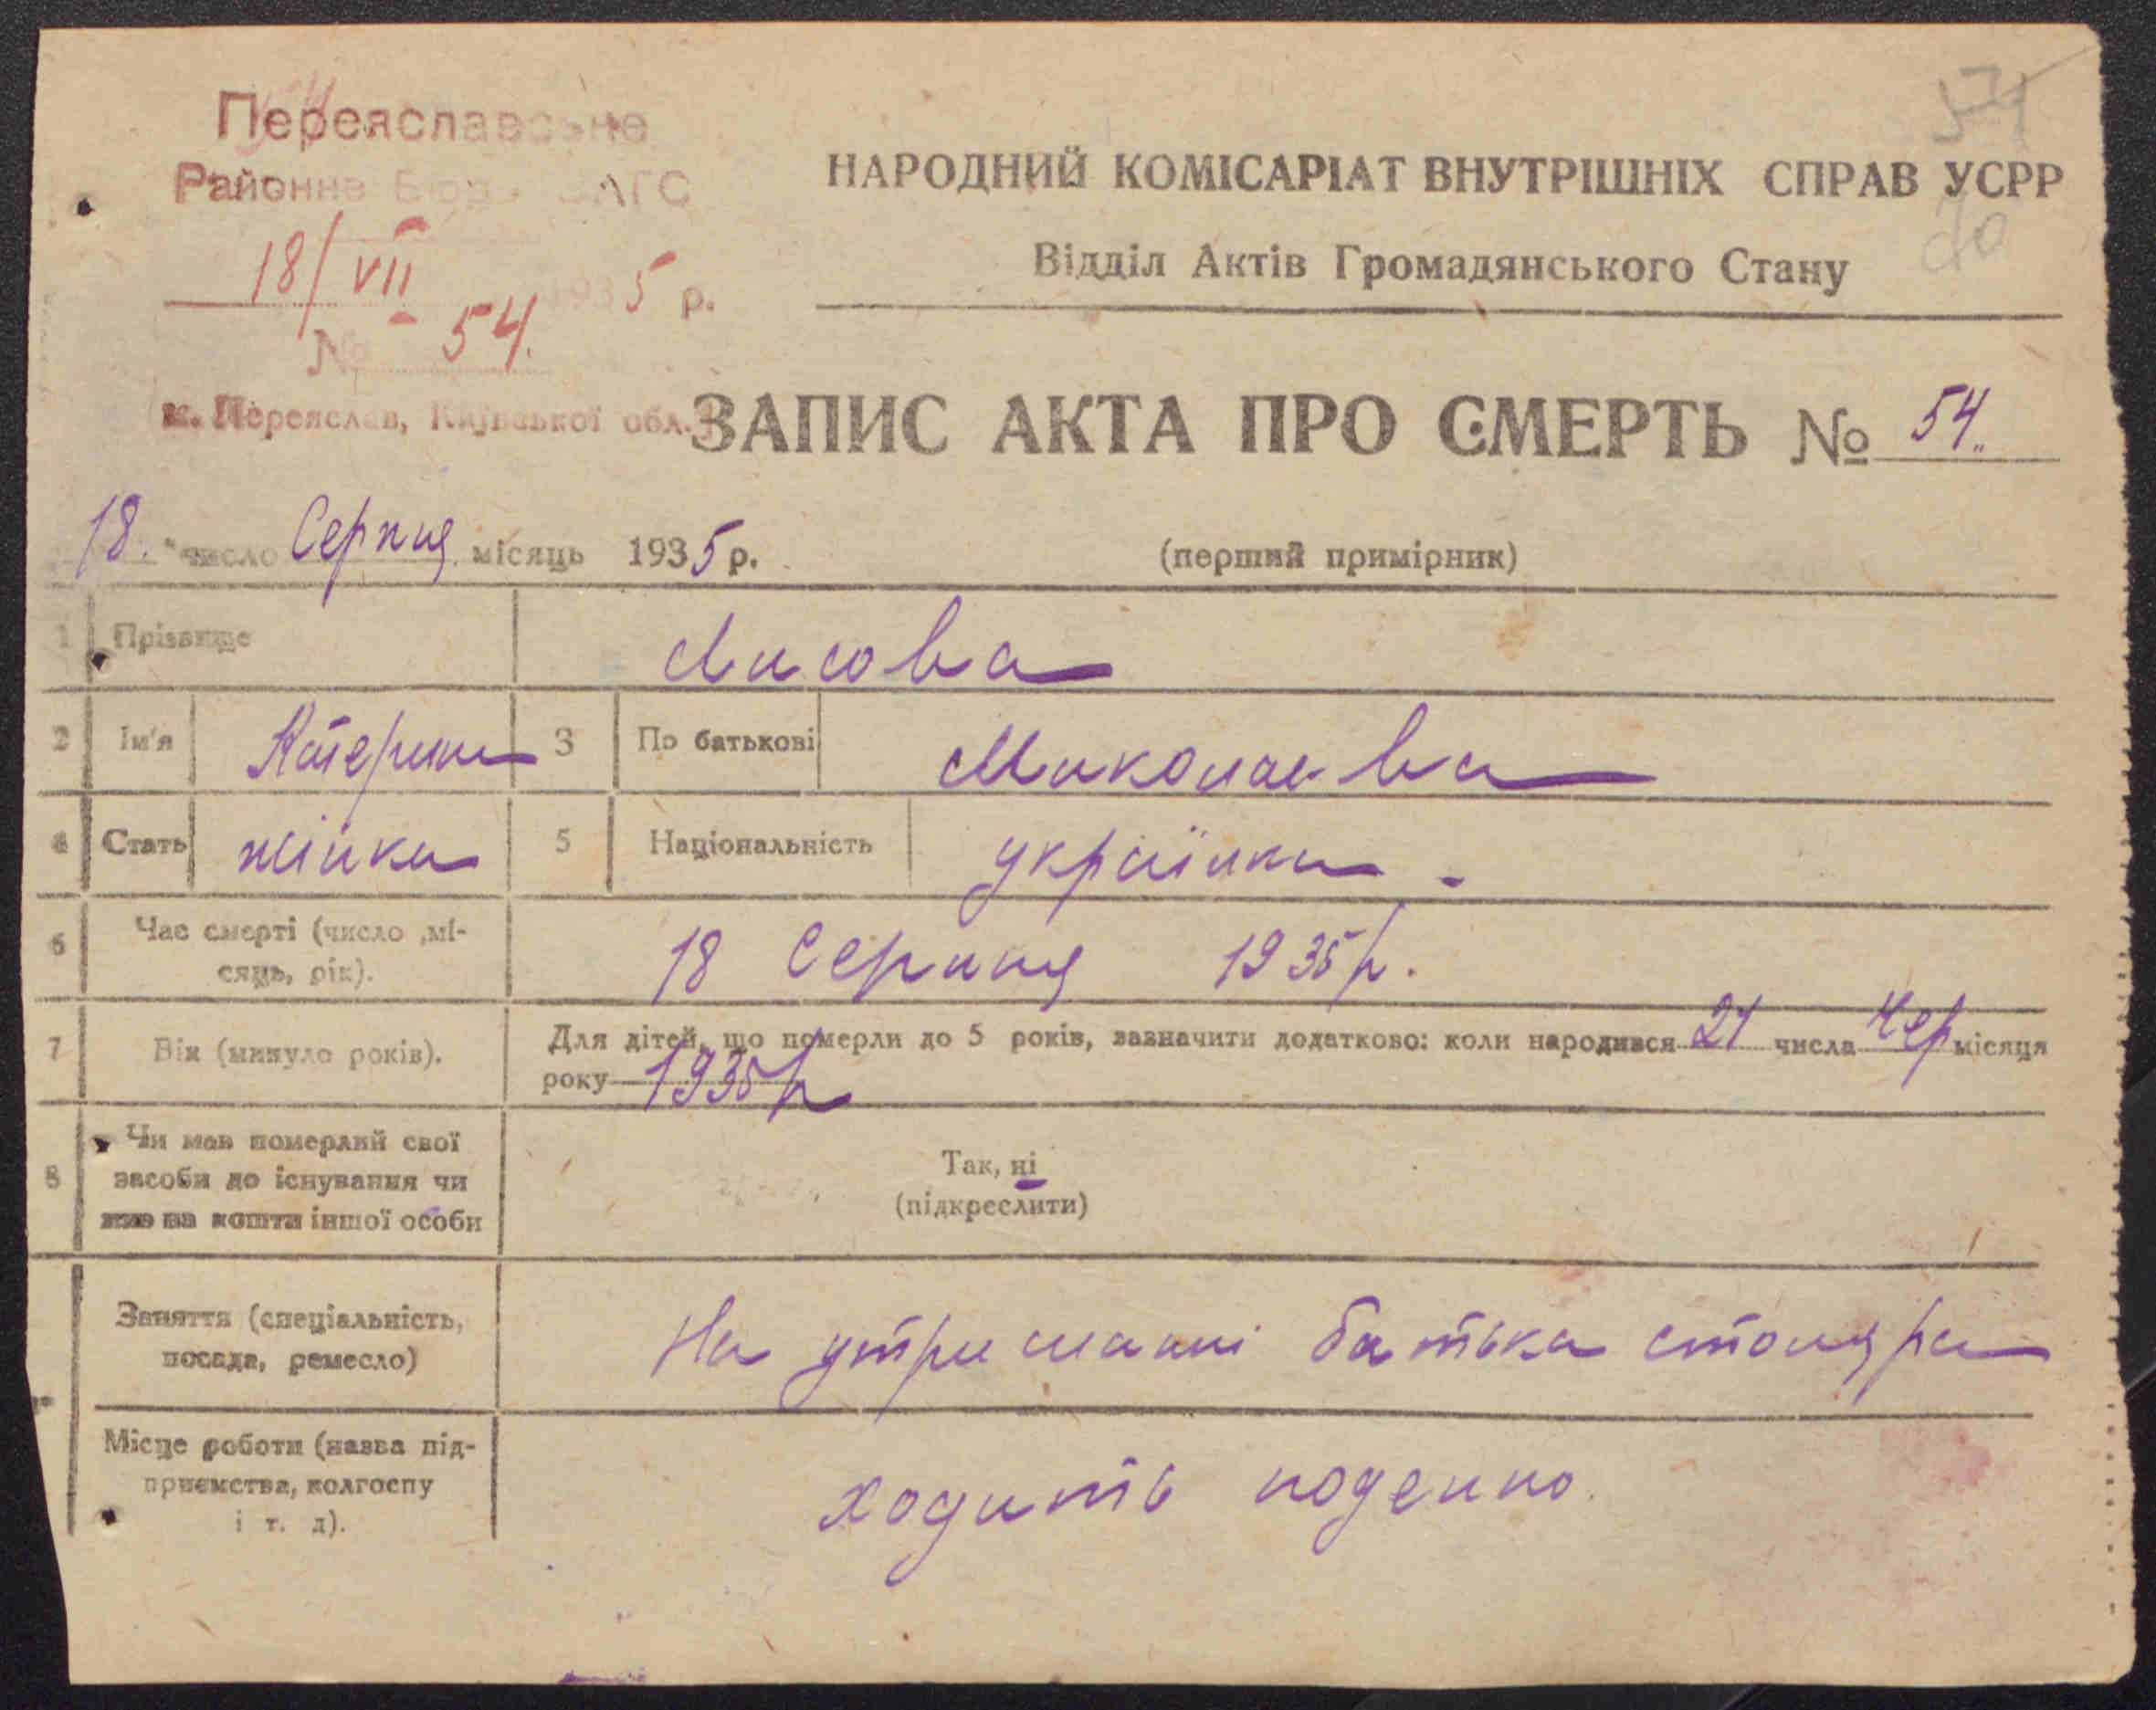 Переяславське
Районне Бюро ЗАГС
18/VII 1935 р.
№ 54.
м. Переяслав, Київської обл.
571
70
НАРОДНИЙ КОМІСАРІАТ ВНУТРІШНІХ СПРАВ УСРР
Відділ Актів Громадянського Стану
ЗАПИС АКТА ПРО СМЕРТЬ № 54.
18. " число Серпня місяць 1935 р.
(перший примірник)
1 Прізвище Лисова
2 Ім'я Катерина 3 По батькові Миколаевна
4 Стать жінка 5 Національність українка.
6 Час смерті (число ,мі-
сяць, рік).
18 Серпня 1935 р.
7 Вік (минуло років).
Для дітей, що померли до 5 років, зазначити додатково: коли народився 21 числа Чер місяця
року 1935 р
8 Чи мав померлий свої
засоби до існування чи
жив на кошти іншої особи
Так, ні
(підкреслити)
Заняття (спеціальність,
посада, ремесло)
На утриманні батька столяра
Місце роботи (назва під-
приємства, колгоспу
і т. д).
ходить поденно.